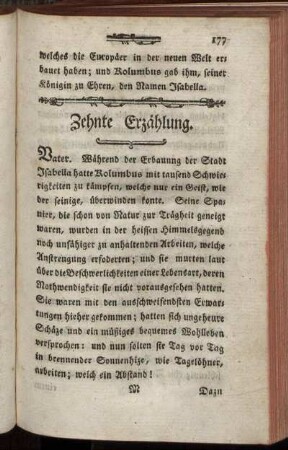 177
welches die Europäer in der neuen Welt er
bauet haben; und Kolumbus gab ihm, seiner
Königin zu Ehren, den Namen Isabella.
Zehnte Erzählung.
Vater. Während der Erbauung der Stadt
Isabella hatte Kolumbus mit tausend Schwie
rigkeiten zu kämpfen, welche nur ein Geist, wie
der seinige, überwinden konte. Seine Spa
nier, die schon von Natur zur Trägheit geneigt
waren, wurden in der heissen Himmelsgegend
noch unfähiger zu anhaltenden Arbeiten, welche
Anstrengung erfoderten; und sie murten laut
über die Beschwerlichkeiten einer Lebensart, deren
Nothwendigkeit sie nicht vorausgesehen hatten.
Sie waren mit den ausschweifendsten Erwar
tungen hieher gekommen; hatten sich ungeheure
Schäze und ein müßiges bequemes Wohlleben
versprochen: und nun solten sie Tag vor Tag
in brennender Sonnenhize, wie Tagelöhner,
arbeiten; welch ein Abstand!
M Dazu